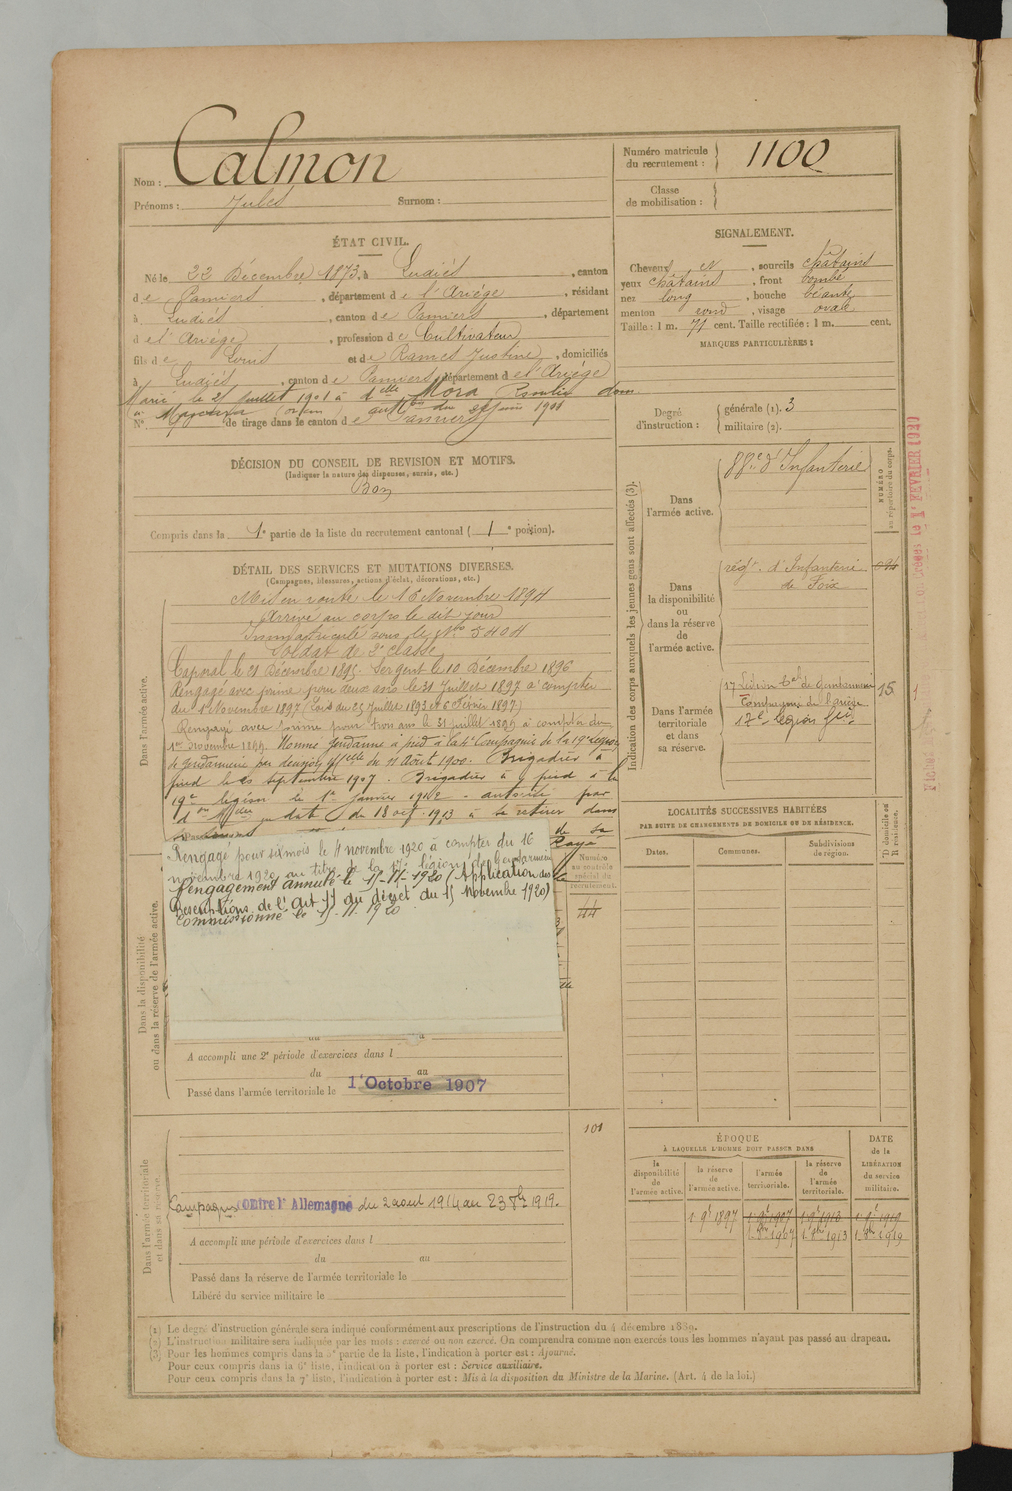 Nom : Calmon
Prénoms : Jules Surnom :
Numéro matricule
du recrutement : 1100
Classe
de mobilisation :
ÉTAT CIVIL.
Né le 22 Décembre 1873, à Ludiès, canton
de Pamiers, département de l'Ariège, résidant
à Ludiès, canton de Pamiers, département
de l'Ariège, profession de Cultivateur
fils de Louis et de Rames Justine, domiciliés
à Ludiès, canton de Pamiers, département de l'Ariège
Marié le 27 Juillet 1901 à Mlle Mora dom.
à (oran) du Juin 1901
N° de tirage dans le canton de Pamiers
SIGNALEMENT.
Cheveux et, sourcils châtains
yeux châtains, front bombé
nez long, bouche béante
menton rond, visage ovale
Taille : 1 m. 71 cent. Taille rectifiée : 1 m. cent.
MARQUES PARTICULIÈRES :
Degré
d'instruction :
générale (1). 3
militaire (2).
DÉCISION DU CONSEIL DE REVISION ET MOTIFS.
(Indiquer la nature des dispenses, sursis, etc.)
Bon
Compris dans la 1e partie de la liste du recrutement cantonal (1e portion).
DÉTAIL DES SERVICES ET MUTATIONS DIVERSES.
(Campagnes, blessures, actions d'éclat, décorations, etc.)
Dans l'armée active.
Mis en route le 16 Novembre 1894
Arrivé au corps le dit jour
Immatriculé sous le No 5404
Soldat de 2e classe
Caporal le 21 Décembre 1895. Sergent le 10 Décembre 1896
Rengagé avec prime pour deux ans le 31 Juillet 1897 à compter
du 1er Novembre 1897 (Lois du 25 Juillet 1893 et 6 Février 1897)
Rengagé avec prime pour trois ans le 31 juillet 1899 à compter du
1er Novembre 1899. Nommé Gendarme à pied à la 4e Compagnie de la 19e Légion
de Gendarmerie par décision Mlle du 11 Août 1900. Brigadier à
pied le septembre 1907. Brigadier à pied à la
19e légion le 1er janvier 1912 - autorisé par
don Mlle en date du 18 oct. 1913 à se retirer dans
de sa
Rengagé pour six mois le 11 novembre 1920 à compter du 16
novembre 1920 au titre de la 17e légion de Gendarmerie
Rengagement annulé le 15-11-1920 (Application des
Prescriptions de l'Art 11 du décret du 15 Novembre 1920)
Commissionné le 15.11.1920
Numéro
au contrôle
spécial du
recrutement.
44
Dans la disponibilité
ou dans la réserve de l'armée active.
A accompli une 2e période d'exercices dans l
du au
Passé dans l'armée territoriale le 1er Octobre 1907
101
Dans l'armée territoriale
et dans sa réserve.
Campagnes contre l'Allemagne du 2 aout 1914 au 23 8bre 1919.
A accompli une période d'exercices dans l
du au
Passé dans la réserve de l'armée territoriale le
Libéré du service militaire le
Indication des corps auxquels les jeunes gens sont affectés (3).
Dans
l'armée active.
88e d'Infanterie
NUMÉRO
au répertoire du corps.
Dans
la disponibilité
ou
dans la réserve
de
l'armée active.
régt. d'Infanterie
de Foix
Dans l'armée
territoriale
et dans
sa réserve.
17 Légion bis de Gendarmerie
Compagnie de l'Ariège
17e légion Gie
15
LOCALITÉS SUCCESSIVES HABITÉES
PAR SUITE DE CHANGEMENTS DE DOMICILE OU DE RÉSIDENCE.
Dates.
Communes.
Subdivisions
de région.
D domicile ou
R résidence.
ÉPOQUE
À LAQUELLE L'HOMME DOIT PASSER DANS
la
disponibilité
de
l'armée active.
la réserve
de
l'armée active.
l'armée
territoriale.
la réserve
de
l'armée
territoriale.
DATE
de la
LIBÉRATION
du service
militaire.
1 9bre 1897 1 9bre 1907 1 9bre 1913 1 9bre 1919
1. 8bre 1907 1. 8bre 1913 1. 8bre 1919
(1) Le degré d'instruction générale sera indiqué conformément aux prescriptions de l'instruction du 4 décembre 1889.
(2) L'instruction militaire sera indiquée par les mots : exercé ou non exercé. On comprendra comme non exercés tous les hommes n'ayant pas passé au drapeau.
(3) Pour les hommes compris dans la 2e partie de la liste, l'indication à porter est : Ajourné.
Pour ceux compris dans la 6e liste, l'indication à porter est : Service auxiliaire.
Pour ceux compris dans la 7e liste, l'indication à porter est : Mis à la disposition du Ministre de la Marine. (Art. 4 de la loi.)
1er FEVRIER 1929